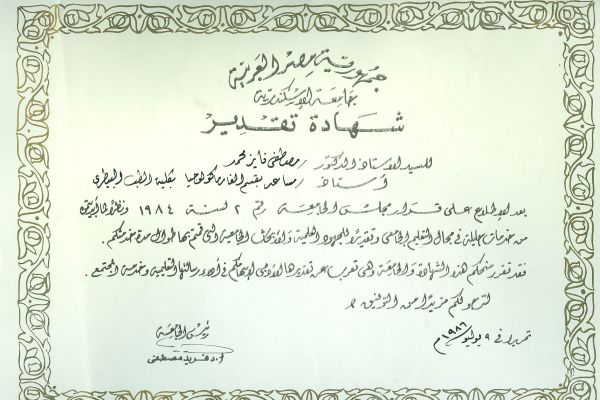 جمهورية مصر العربية
جامعة الإسكندرية
شهادة تقدير
للسيد الأستاذ الدكتور / مصطفى فايز محمد
أستاذ / مساعد بقسم الفارماكولوجيا بكلية الطب البيطرى
بعد الإطلاع على قرار مجلس الجامعة رقم ٢ لسنة ١٩٨٤ ونظراً لما أديتموه
من خدمات جليلة فى مجال التعليم الجامعى وتقديراً للجهود العلمية والأبحاث الجامعية التى قمتم بها طوال مدة خدمتكم.
فقد تقرر منحكم هذه الشهادة والجامعة وهى تعرب عن تقديرها لإسهامكم فى أداء رسالتها التعليمية وخدمة المجتمع.
لترجو لكم مزيداً من التوفيق
تحريراً فى ٩ يوليو ١٩٨٦م
رئيس الجامعة
أ.د فريد مصطفى